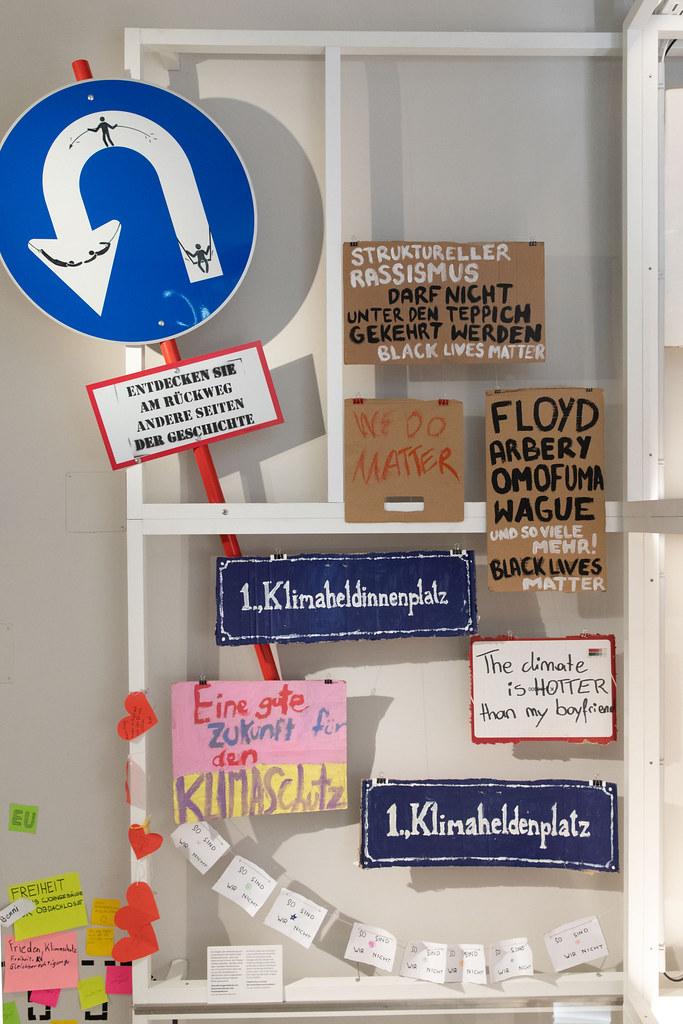 ENTDECKEN SIE
AM RÜCKWEG
ANDERE SEITEN
DER GESCHICHTE
STRUKTURELLER
RASSISMUS
DARF NICHT
UNTER DEN TEPPICH
GEKEHRT WERDEN
BLACK LIVES MATTER
WE DO
MATTER
FLOYD
ARBERY
OMOFUMA
WAGUE
UND SO VIELE
MEHR!
BLACK LIVES
MATTER
1., Klimaheldinnenplatz
The climate
is HOTTER
than my boyfriend
Eine gute
zukunft für
den
KLIMASchutz
1., Klimaheldenplatz
SO SIND
WIR NICHT
SO SIND
WIR NICHT
SO SIND
WIR NICHT
SO SIND
WIR NICHT
SO SIND
WIR NICHT
SO SIND
WIR NICHT
SO SIND
WIR NICHT
SO SIND
WIR NICHT
EU
FREIHEIT
OBDACHLOSE
Frieden, Klimaschutz